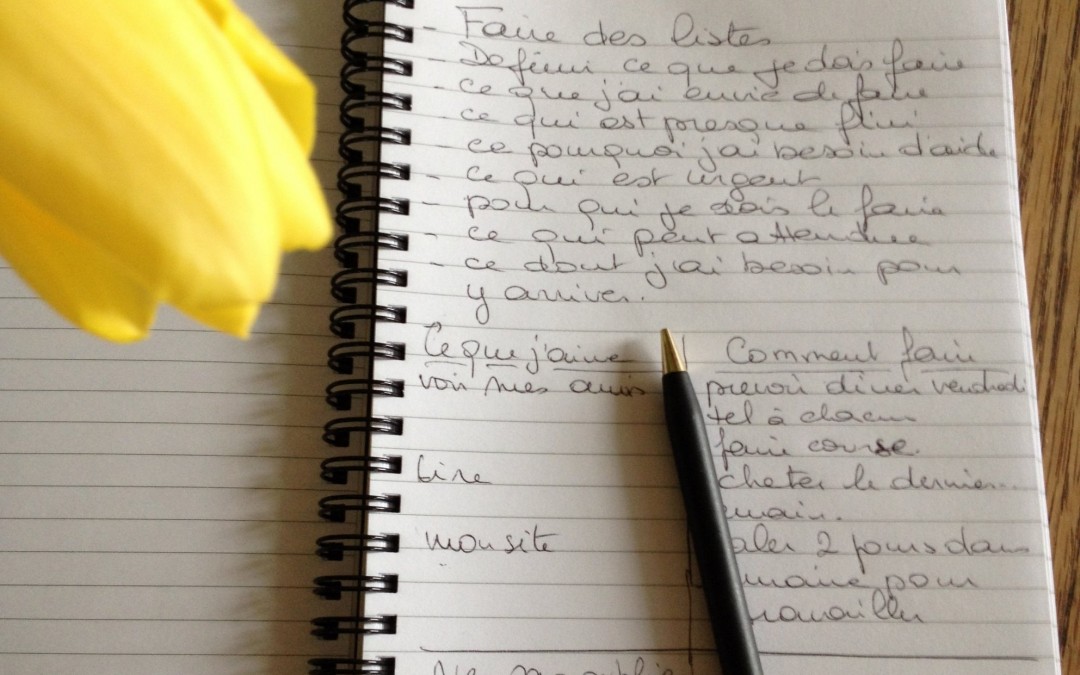 - Faire des listes
- Définir ce que je dois faire
- ce que j'ai envie de faire
- ce qui est presque fini
- ce pourquoi j'ai besoin d'aide
- ce qui est urgent
- pour qui je dois le faire
- ce qui peut attendre
- ce dont j'ai besoin pour
y arriver.
Ce que j'aime Comment faire
voir mes amis prevoir diner vendredi
tel à chacun
faire course.
Lire cheter le dernier...
mon site 2 jours dans
pour